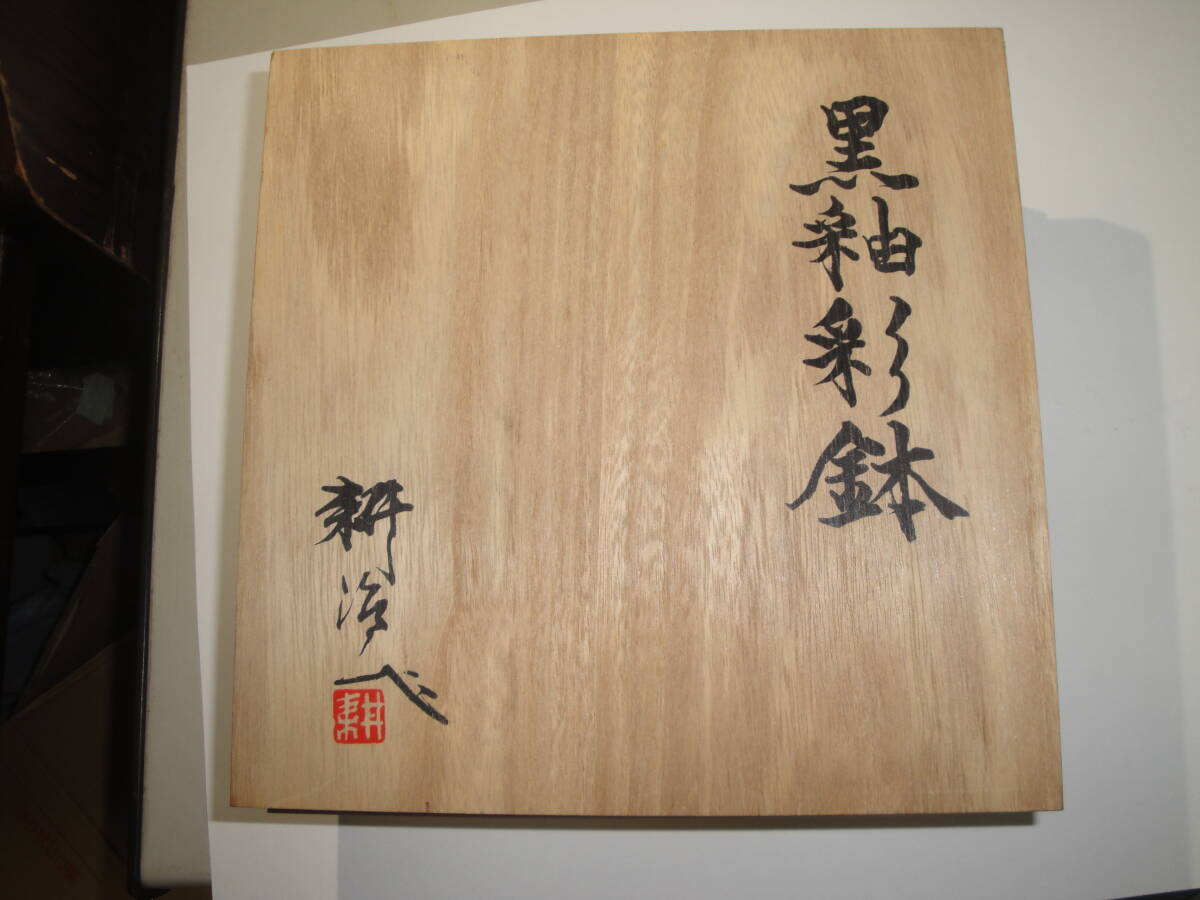 黒釉彩鉢
耕治
耕